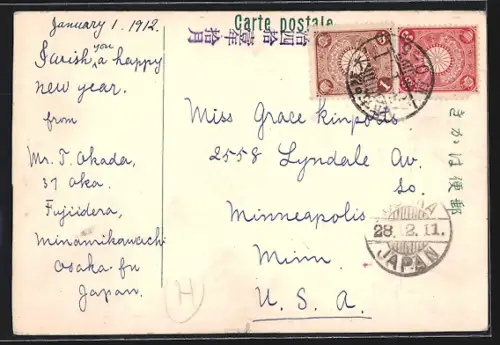 January 1. 1912.
I wish you a happy
new year.
from
Mr. T. Okada,
37 Oka.
Fujiidera,
Minamikawachi
Osaka-fu
Japan.
Carte postale
Miss Grace Kinports
2558 Lyndale Av.
So.
Minneapolis
Minn
U. S. A.
きかは便郵
28.12.11.
JAPAN
H